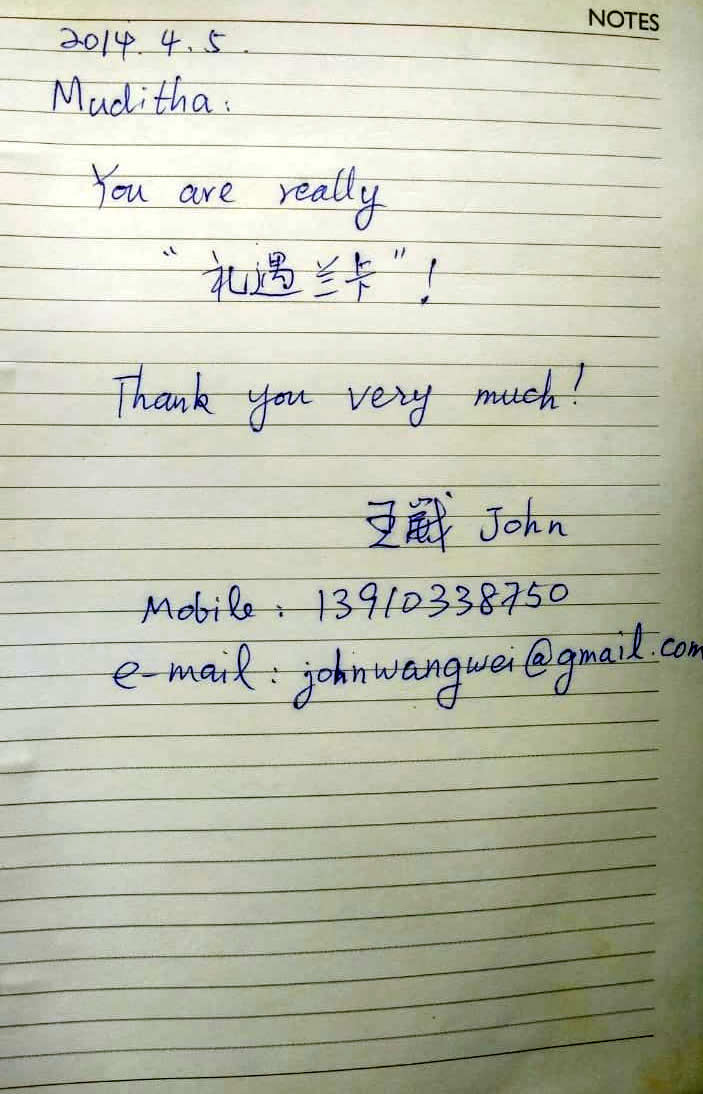 NOTES
2014.4.5.
Muditha:
You are really
“礼遇兰卡”!
Thank you very much!
王 John
Mobile: 13910338750
e-mail: johnwangwei@gmail.com